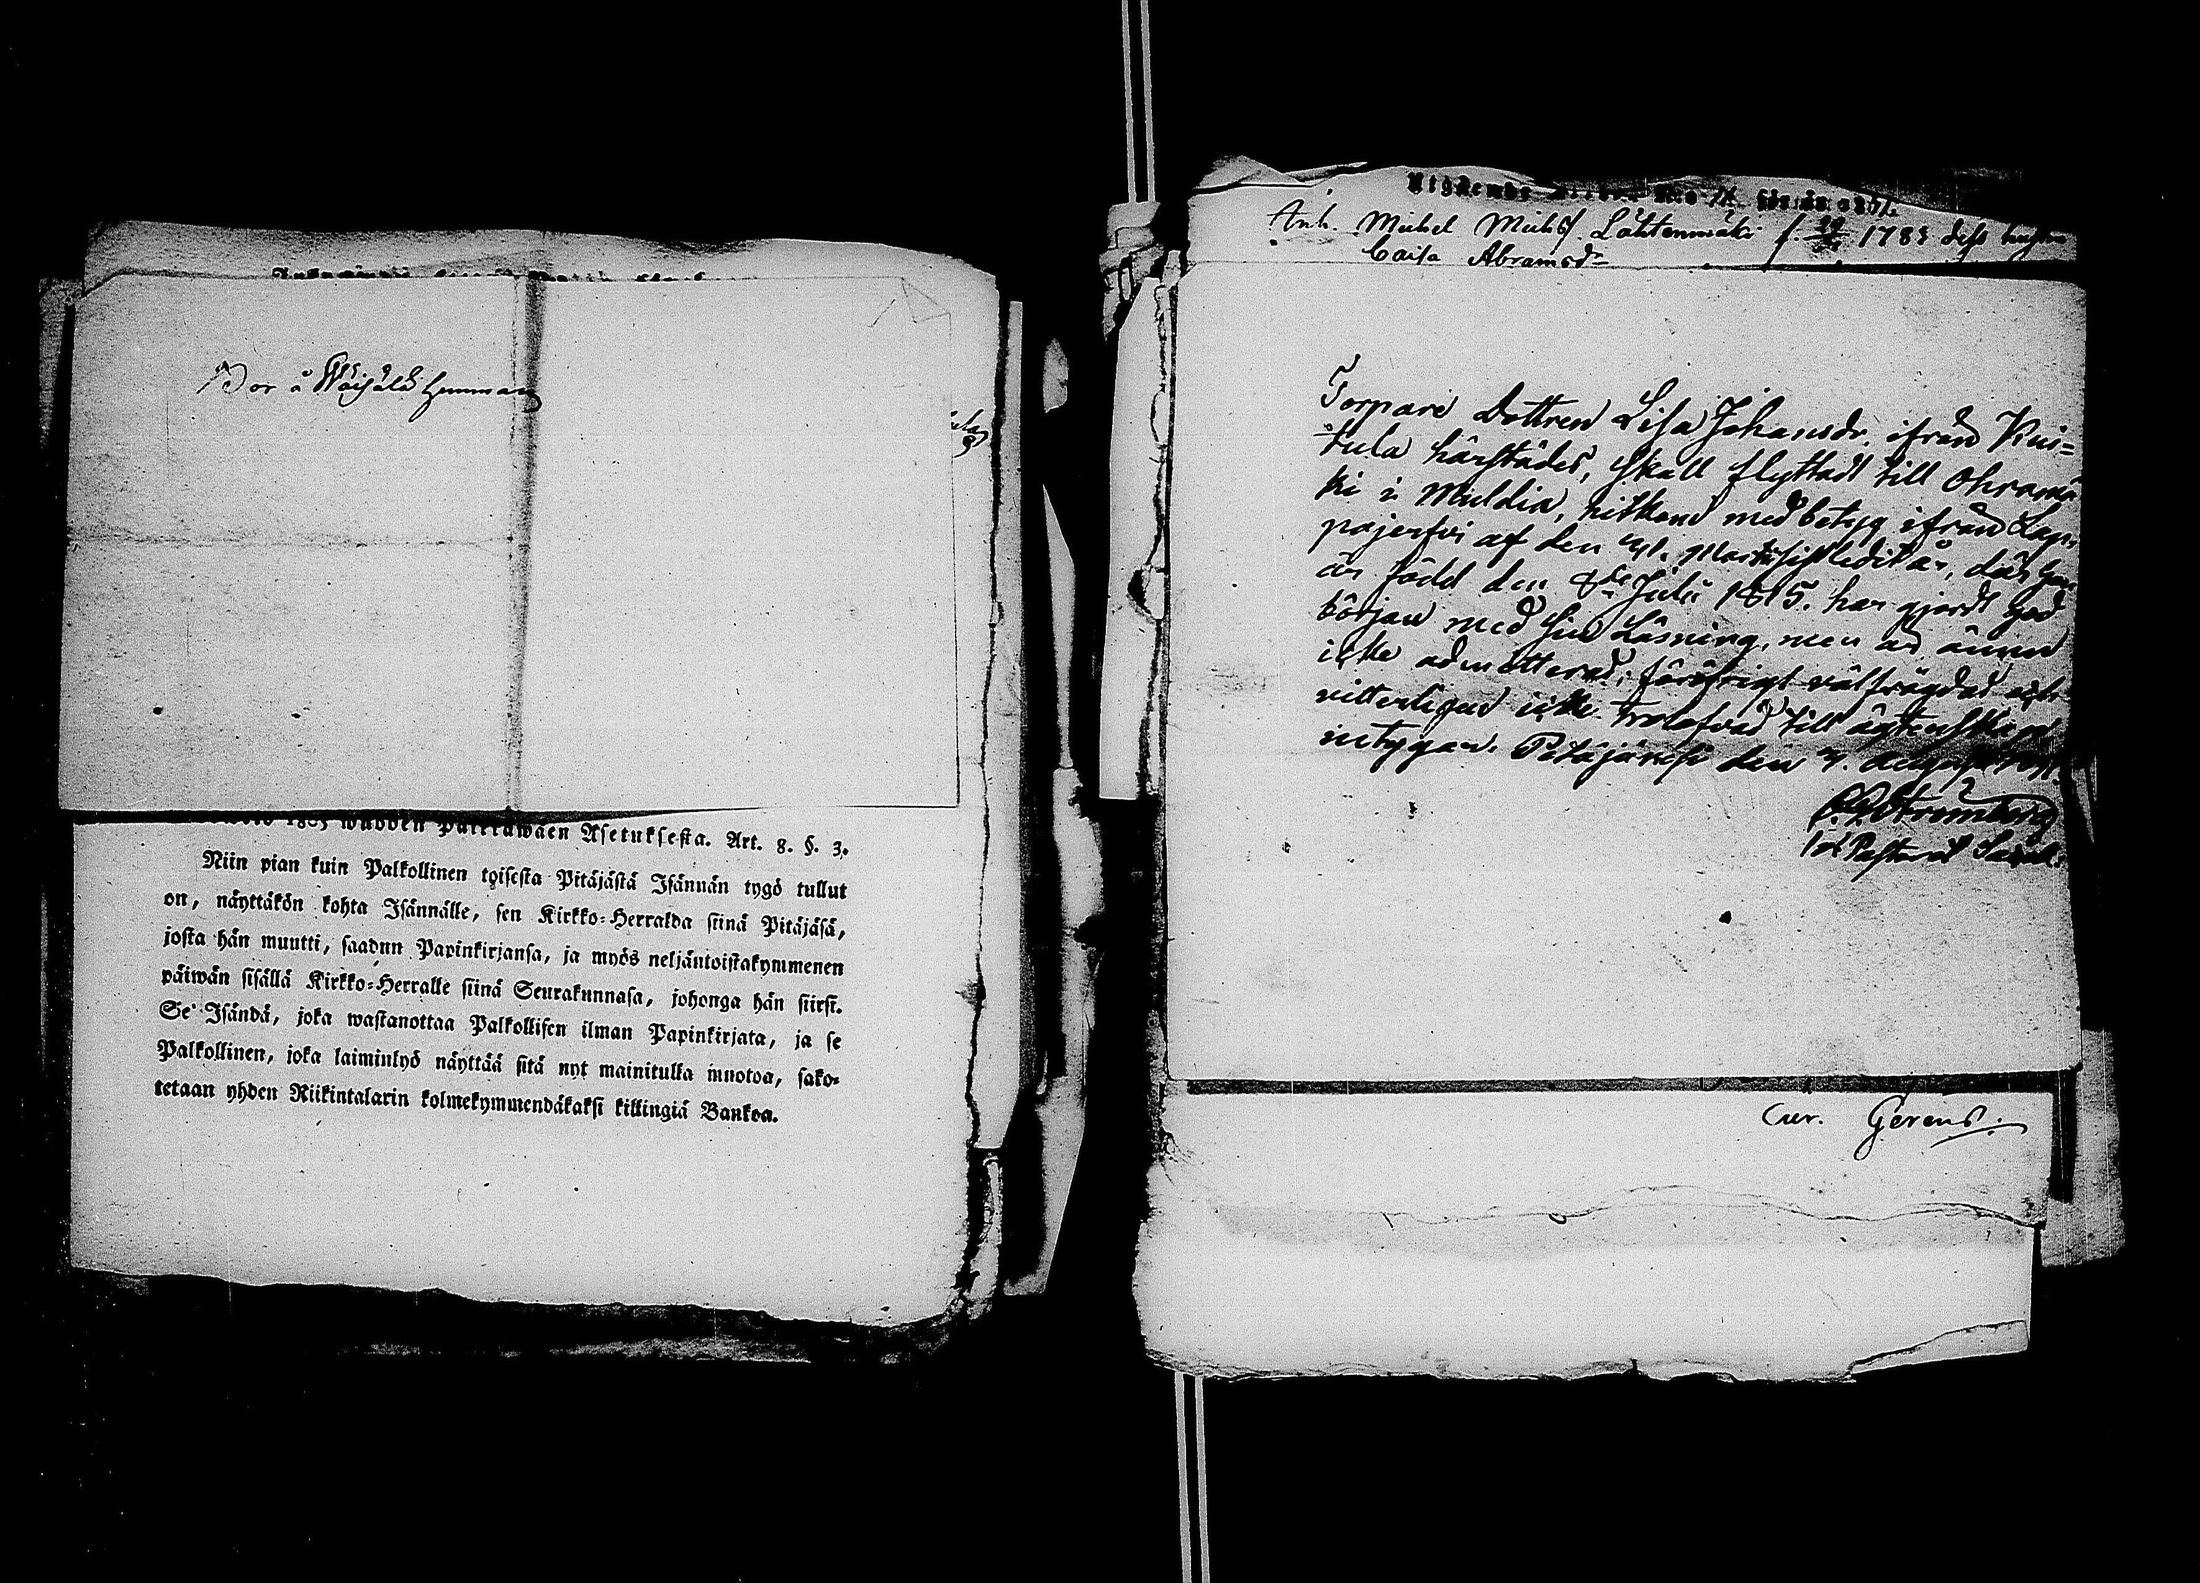 Bor å Wäisälä hemman
1805 wuoden Palkkawäen Asetuksesta. Art. 8. §. 3.
Niin pian kuin Palkollinen toisesta Pitäjästä Isännän tygö tullut
on, näyttäkön kohta Isännälle, sen Kirkko-Herralda siinä Pitäjäsä,
josta hän muutti, saadun Papinkirjansa, ja myös neljäntoistakymmenen
päiwän sisällä Kirkko-Herralle siinä Seurakunnasa, johonga hän siirsi.
Se Isändä, joka wastanottaa Palkollisen ilman Papinkirjata, ja se
Palkollinen, joka laiminlyö näyttää sitä nyt mainitulla muotoa, sako-
tetaan yhden Riikintalarin kolmekymmendäkaksi killingiä Bankoa.
Anh. Michel Michelss. Lähtenmäki f. 1783 dess hustru
Caisa Abramsdr
Torpare Dottren Lisa Johansdr. ifrån Kui-
tula härstädes, skall flyttad till Ohramä
ki i Muldia, hitkom med betyg ifrån Lap
pajerfvi af den Martii sistledit år, där hon
är född den 8de Julii 1815. har gjordt god
början med sin Läsning, men är ännu
icke admitterad; föröfrigt välfrägdad och
vitterligen icke trolofvad till ägtenskap
intygar. Petäjävesi den 7. August
Strömberg
Past. Sacell.
Cur. Gerens.